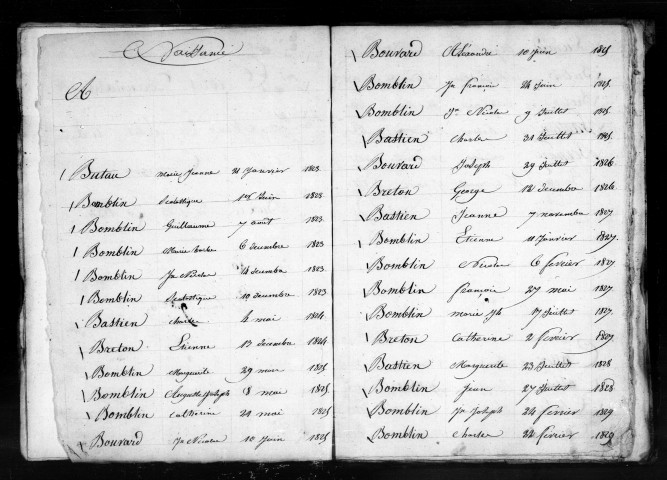 Naissance
A
Butau marie jeanne 21 Janvier 1823
Bomblin Scolastique 1er Juin 1823
Bomblin Guillaume 7 août 1823
Bomblin Marie barbe 6 décembre 1823
Bomblin Jn Nicolas 14 décembre 1823
Bomblin Scolastique 10 décembre 1823
Bastien charles 4 mai 1824
Breton Etienne 13 décembre 1824
Bomblin Marguerite 29 mars 1825
Bomblin Auguste Joseph 8 mai 1825
Bomblin catherine 21 mai 1825
Bouvard Jn Nicolas 10 Juin 1825
Bouvard Alexandre 10 Juin 1825
Bomblin Jn françois 24 Juin 1825
Bomblin Jn Nicolas 9 Juillet 1825
Bastien charles 31 Juillet 1825
Bouvard Joseph 29 Juillet 1826
Breton George 12 décembre 1826
Bastien Jeanne 7 novembre 1827
Bomblin Etienne 11 Janvier 1827
Bomblin Nicolas 6 fevrier 1827
Bomblin françois 27 mai 1827
Bomblin marie Jh 17 Juillet 1827
Breton Catherine 2 fevrier 1827
Bastien Marguerite 23 Juillet 1828
Bomblin Jean 27 Juillet 1828
Bomblin Jn Joseph 24 fevrier 1829
Bomblin charles 24 fevrier 1829